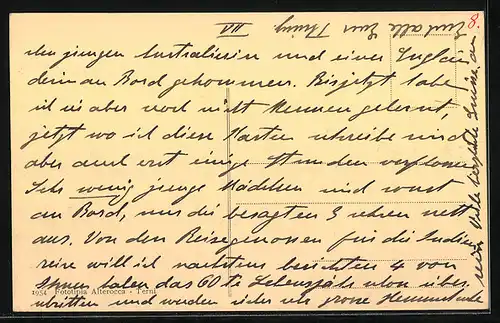 8.
III
den jungen Australierin und einer Englän-
derin an Bord gekommen. Bis jetzt habe
ich sie aber noch nicht kennen gelernt,
jetzt wo ich diese Karten schreibe sind
aber auch erst einige Stunden verflossen.
Sehr wenig junge Mädchen sind sonst
an Bord, nur die besagten 3 sehen nett
aus. Von den Reisegenossen für die Indien
reise will ich nächstens berichten 4 von
Ihnen haben das 60te Lebensjahr schon über-
schritten und werden sicher als grosse
1954 Fototipia Alterocca - Terni
viele herzliche Grüsse an